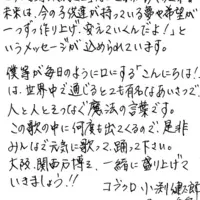 未来は、今の子供達が持っている夢や希望が
一つずつ作り上げ、変えていくんだよ！」と
いうメッセージが込められています。
僕等が毎日のように口にする「こんにちは！」
は、世界中で通じるとても有名なあいさつで、
人と人とをつなぐ魔法の言葉です。
この歌の中に何度も出てくるので是非
みんなで元気に歌って、踊って下さい。
大阪、関西万博を、一緒に盛り上げて
いきましょう!!
コブクロ 小渕健太郎